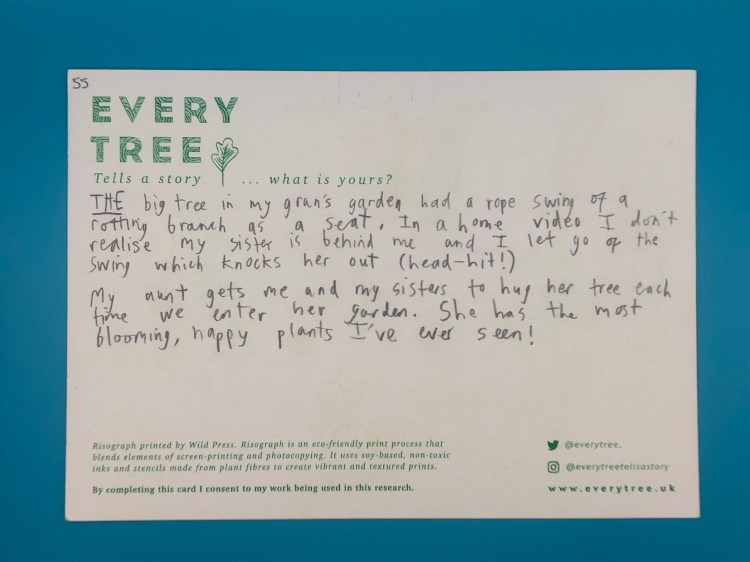 55
EVERY
TREE
Tells a story ... what is yours?
THE big tree in my gran's garden had a rope swing of a
rotting branch as a seat. In a home video I don't
realise my sister is behind me and I let go of the
swing which knocks her out (head-hit!)
My aunt gets me and my sisters to hug her tree each
time we enter her garden. She has the most
blooming, happy plants I've ever seen!
Risograph printed by Wild Press. Risograph is an eco-friendly print process that
blends elements of screen-printing and photocopying. It uses soy-based, non-toxic
inks and stencils made from plant fibres to create vibrant and textured prints.
By completing this card I consent to my work being used in this research.
@everytree_
@everytreetellsastory
www.everytree.uk